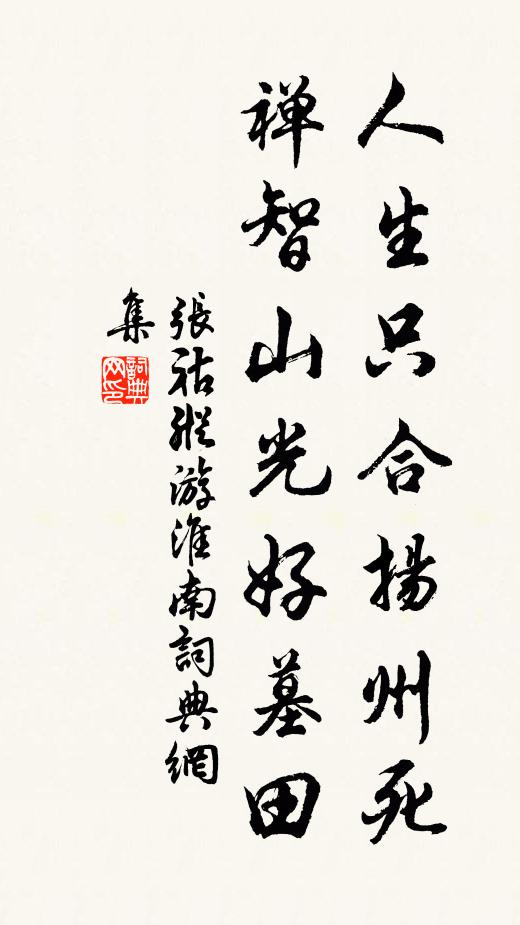 人生只合揚州死
禅智山光好墓田
張祜縱游淮南詞典網
集
詞典网印